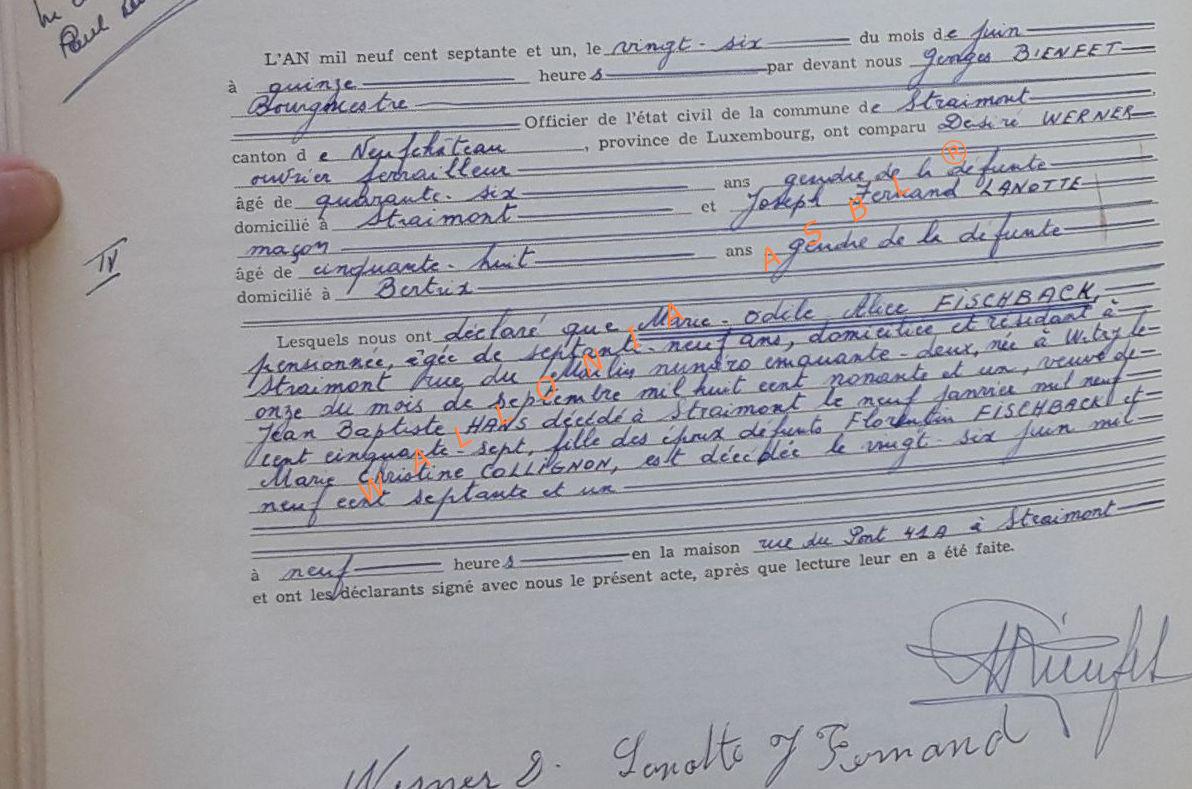 Paul
L'AN mil neuf cent septante et un, le vingt-six du mois de juin
à quinze heures par devant nous Georges BIENFET
Bourgmestre
Officier de l'état civil de la commune de Straimont,
canton de Neufchâteau, province de Luxembourg, ont comparu Désiré WERNER
ouvrier ferrailleur
âgé de quarante-six ans gendre de la défunte
domicilié à Straimont et Joseph Fernand LANOTTE
maçon
âgé de cinquante-huit ans gendre de la défunte
domicilié à Bertrix
IV
Lesquels nous ont déclaré que Marie-Odile Alice FISCHBACK,
pensionnée, âgée de septante-neuf ans, domiciliée et résidant à
Straimont rue du Moulin numéro cinquante-deux, née à Witry le
onze du mois de septembre mil huit cent nonante et un, veuve de
Jean Baptiste HANS décédé à Straimont le neuf janvier mil neuf
cent cinquante-sept, fille des époux défunts Florentin FISCHBACK et
Marie Christine COLLIGNON, est décédée le vingt-six juin mil
neuf cent septante et un
à neuf heures en la maison rue du Pont 41A à Straimont
et ont les déclarants signé avec nous le présent acte, après que lecture leur en a été faite.
WALLONIA ASBL ®
Bienfet
Werner D. Lanotte J Fernand